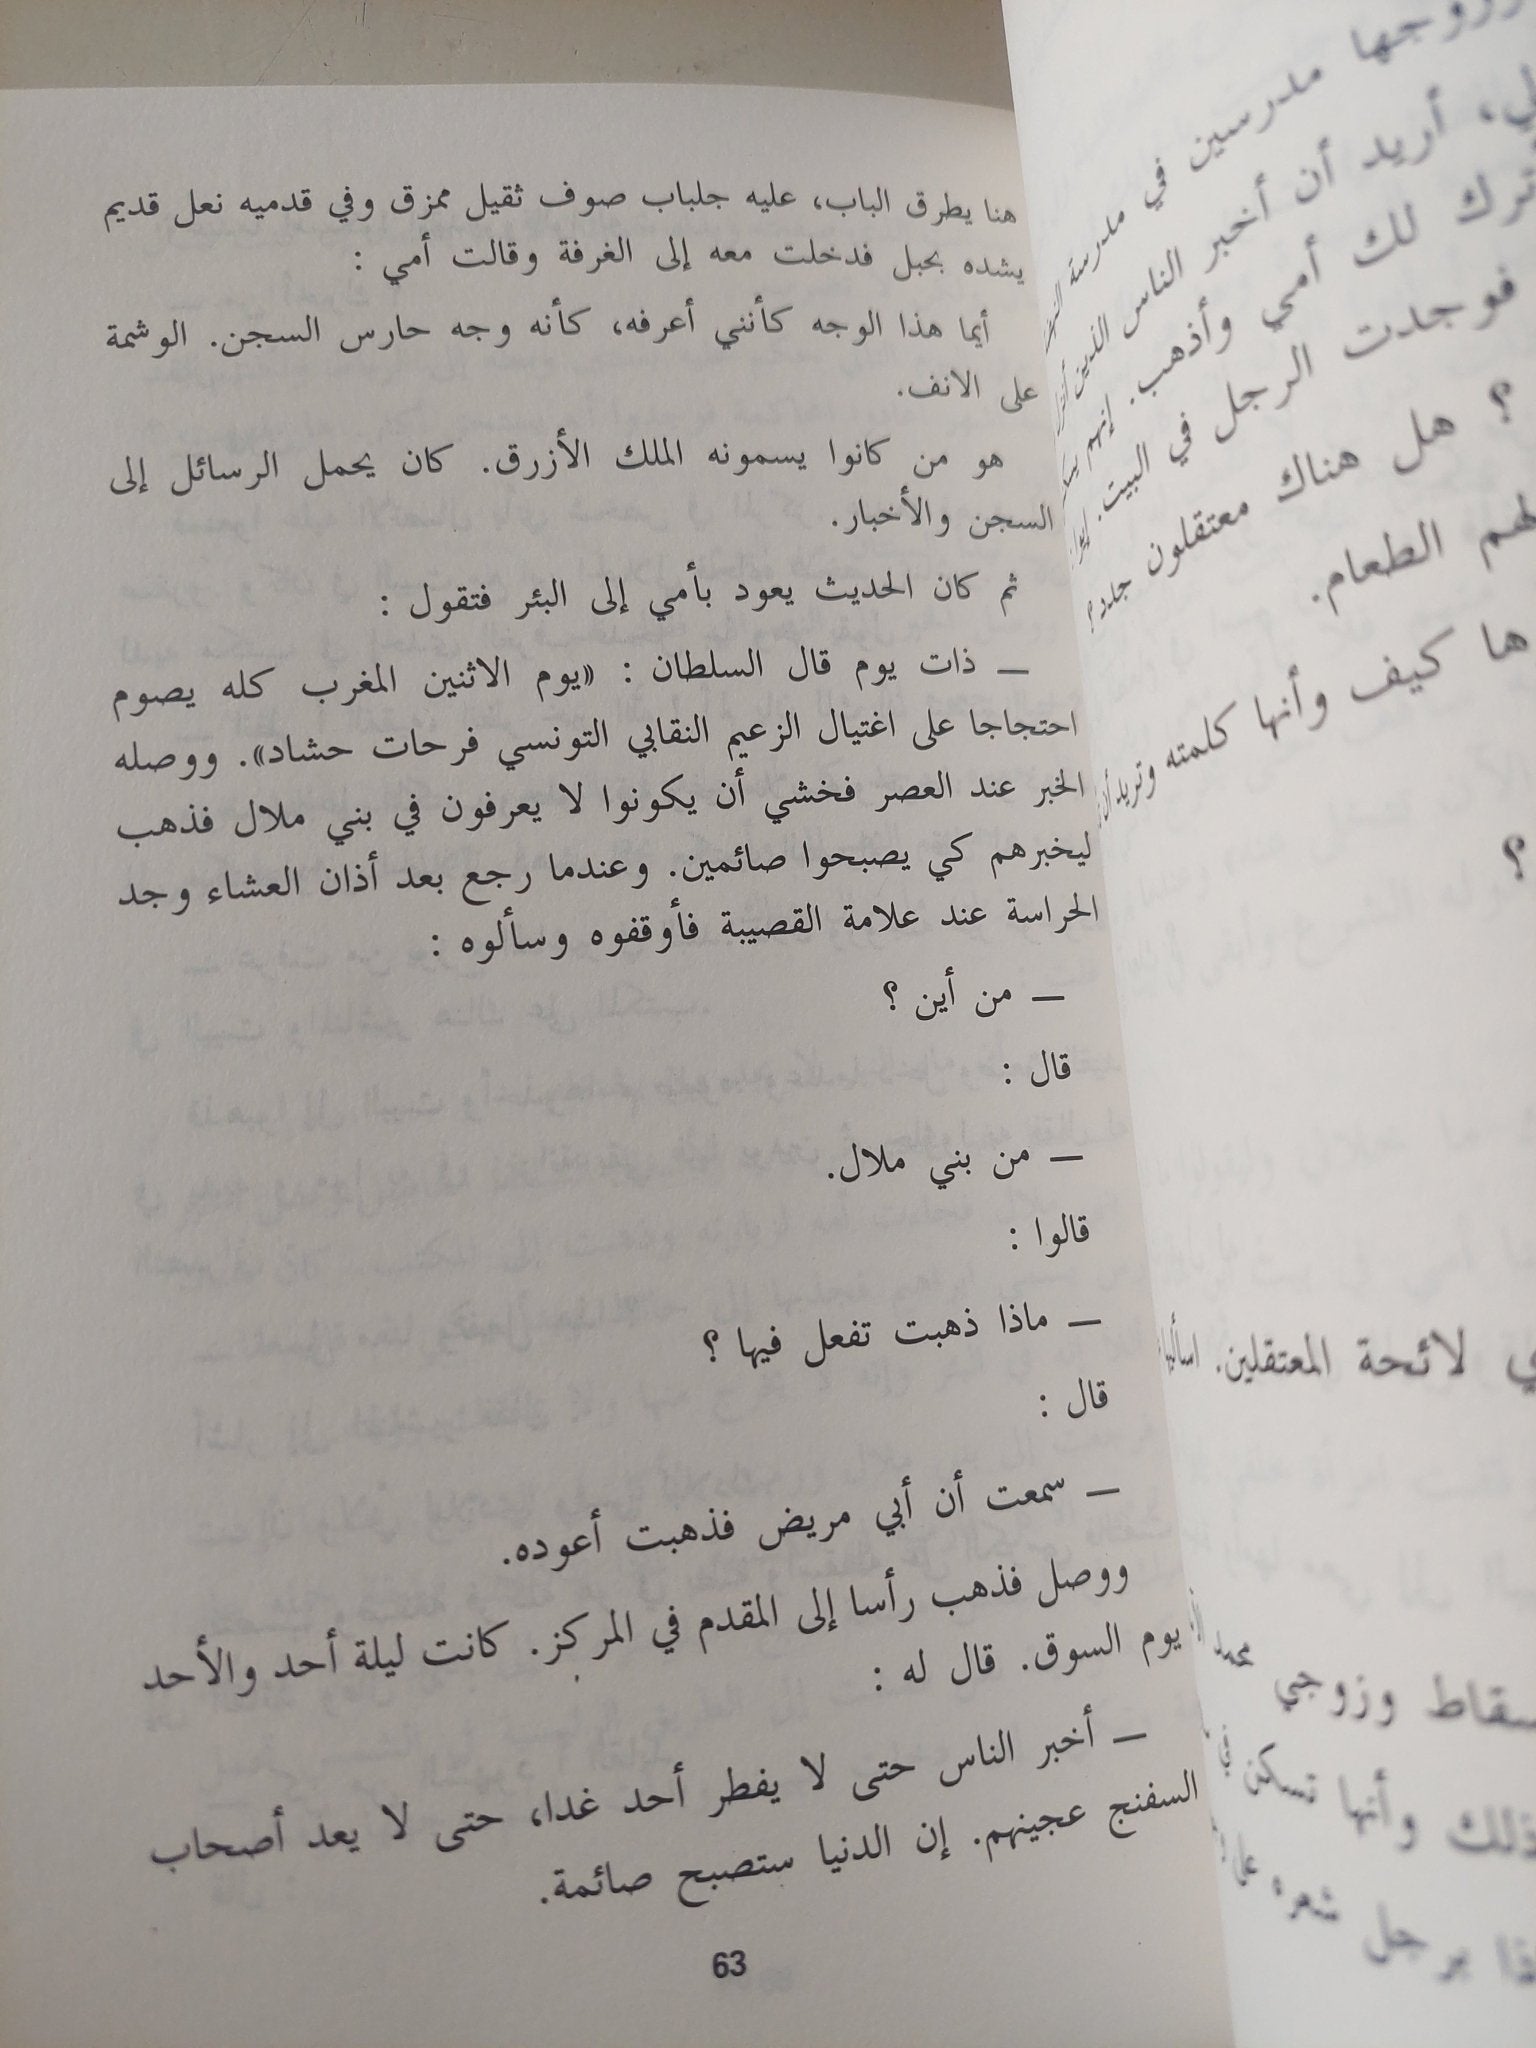 هنا يطرق الباب، عليه جلباب صوف ثقيل ممزق وفي قدميه نعل قديم
يشده بحبل فدخلت معه إلى الغرفة وقالت أمي :
أيما هذا الوجه كأنني أعرفه، كأنه وجه حارس السجن. الوشمة
على الانف.
هو من كانوا يسمونه الملك الأزرق. كان يحمل الرسائل إلى
السجن والأخبار.
ثم كان الحديث يعود بأمي إلى البئر فتقول :
ــ ذات يوم قال السلطان : «يوم الاثنين المغرب كله يصوم
احتجاجا على اغتيال الزعيم النقابي التونسي فرحات حشاد». ووصله
الخبر عند العصر فخشي أن يكونوا لا يعرفون في بني ملال فذهب
ليخبرهم كي يصبحوا صائمين. وعندما رجع بعد أذان العشاء وجد
الحراسة عند علامة القصيبة فأوقفوه وسألوه :
ــ من أين ؟
قال :
ــ من بني ملال.
قالوا :
ــ ماذا ذهبت تفعل فيها ؟
قال :
ــ سمعت أن أبي مريض فذهبت أعوده.
ووصل فذهب رأسا إلى المقدم في المركز. كانت ليلة أحد والأحد
يوم السوق. قال له :
ــ أخبر الناس حتى لا يفطر أحد غدا، حتى لا يعد أصحاب
السفنج عجينهم. إن الدنيا ستصبح صائمة.
63
وزوجها مدرسين في مدرسة
أريد أن أخبر الناس الذين
لك أمي وأذهب. إنهم
فوجدت الرجل في البيت.
؟ هل هناك معتقلون جدد؟
الطعام.
كيف وأنها كلمته وتريد أن
؟
لائحة المعتقلين.
وزوجي محمد
وأنها تسكن في
برجل شعره على